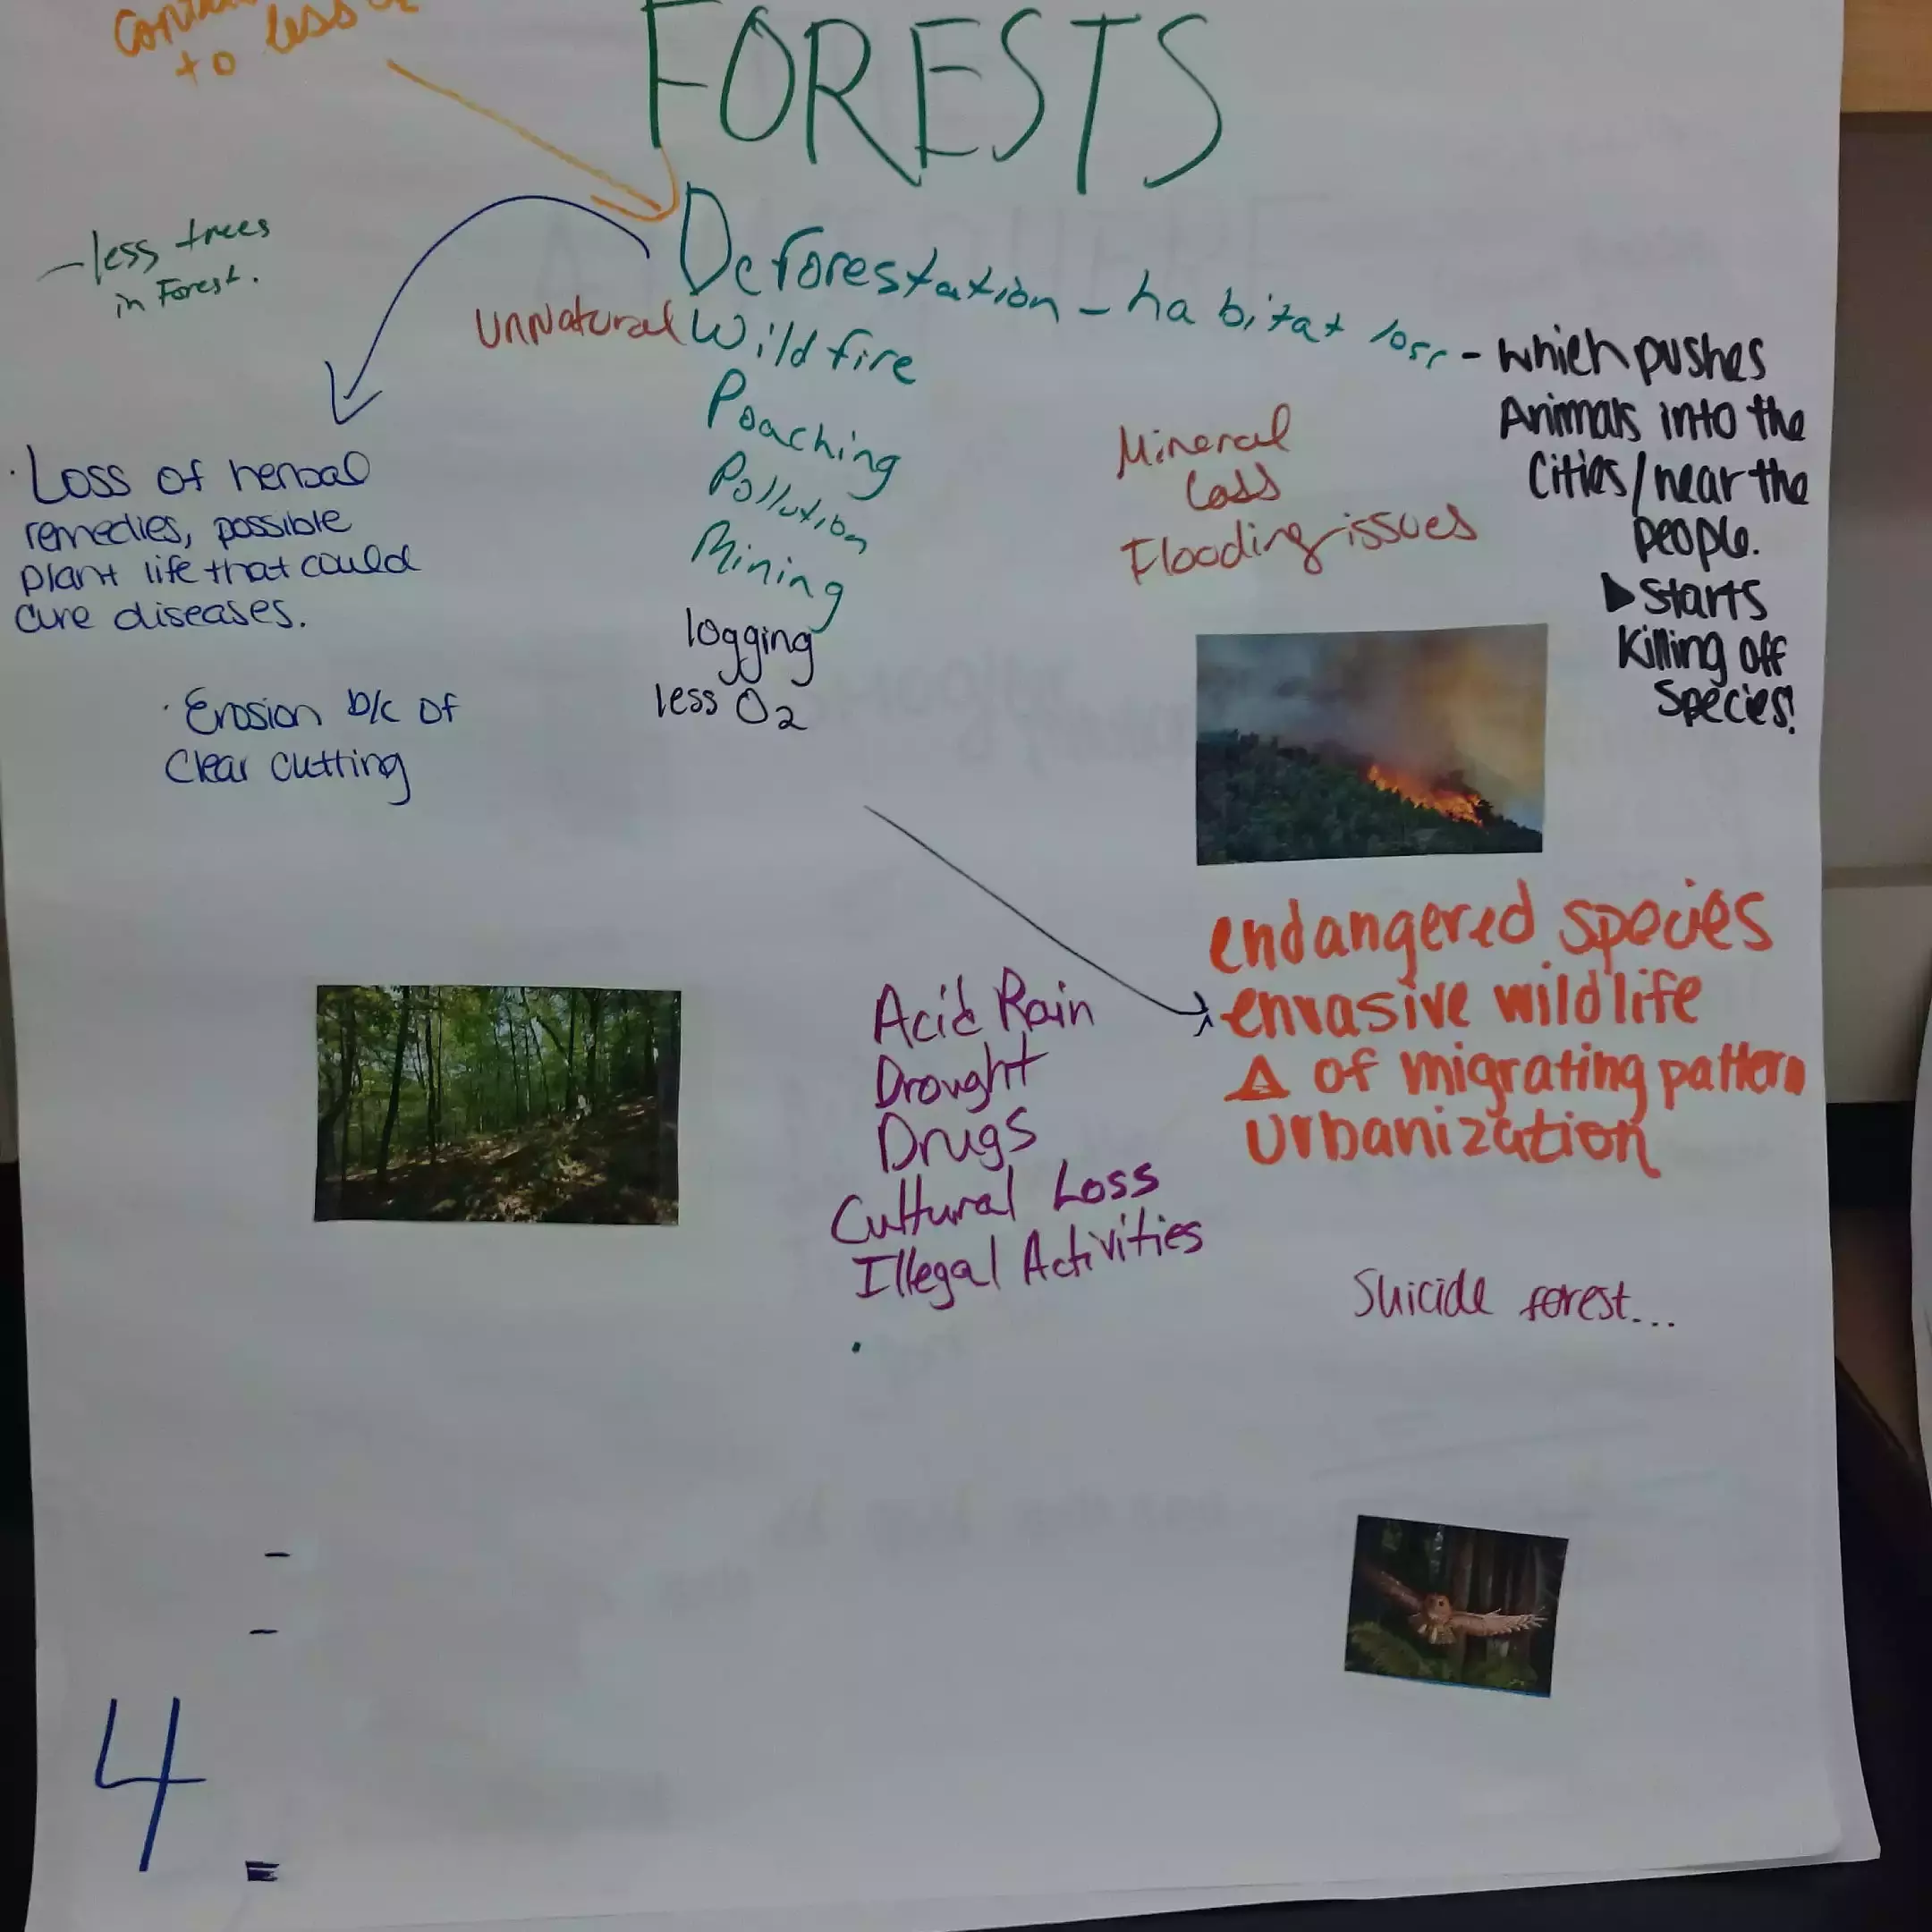 to less
FORESTS
- less trees
in Forest.
Deforestation - habitat loss - which pushes
Animals into the
Cities/near the
people.
▶ Starts
Killing off
Species!
Unnatural Wildfire
Poaching
Pollution
Mining
logging
less O2
Mineral
Loss
Flooding issues
· Loss of herbal
remedies, possible
plant life that could
cure diseases.
· Erosion b/c of
Clear cutting
endangered species
envasive wildlife
Δ of migrating pattern
urbanization
Acid Rain
Drought
Drugs
Cultural Loss
Illegal Activities
Suicide forest...
4